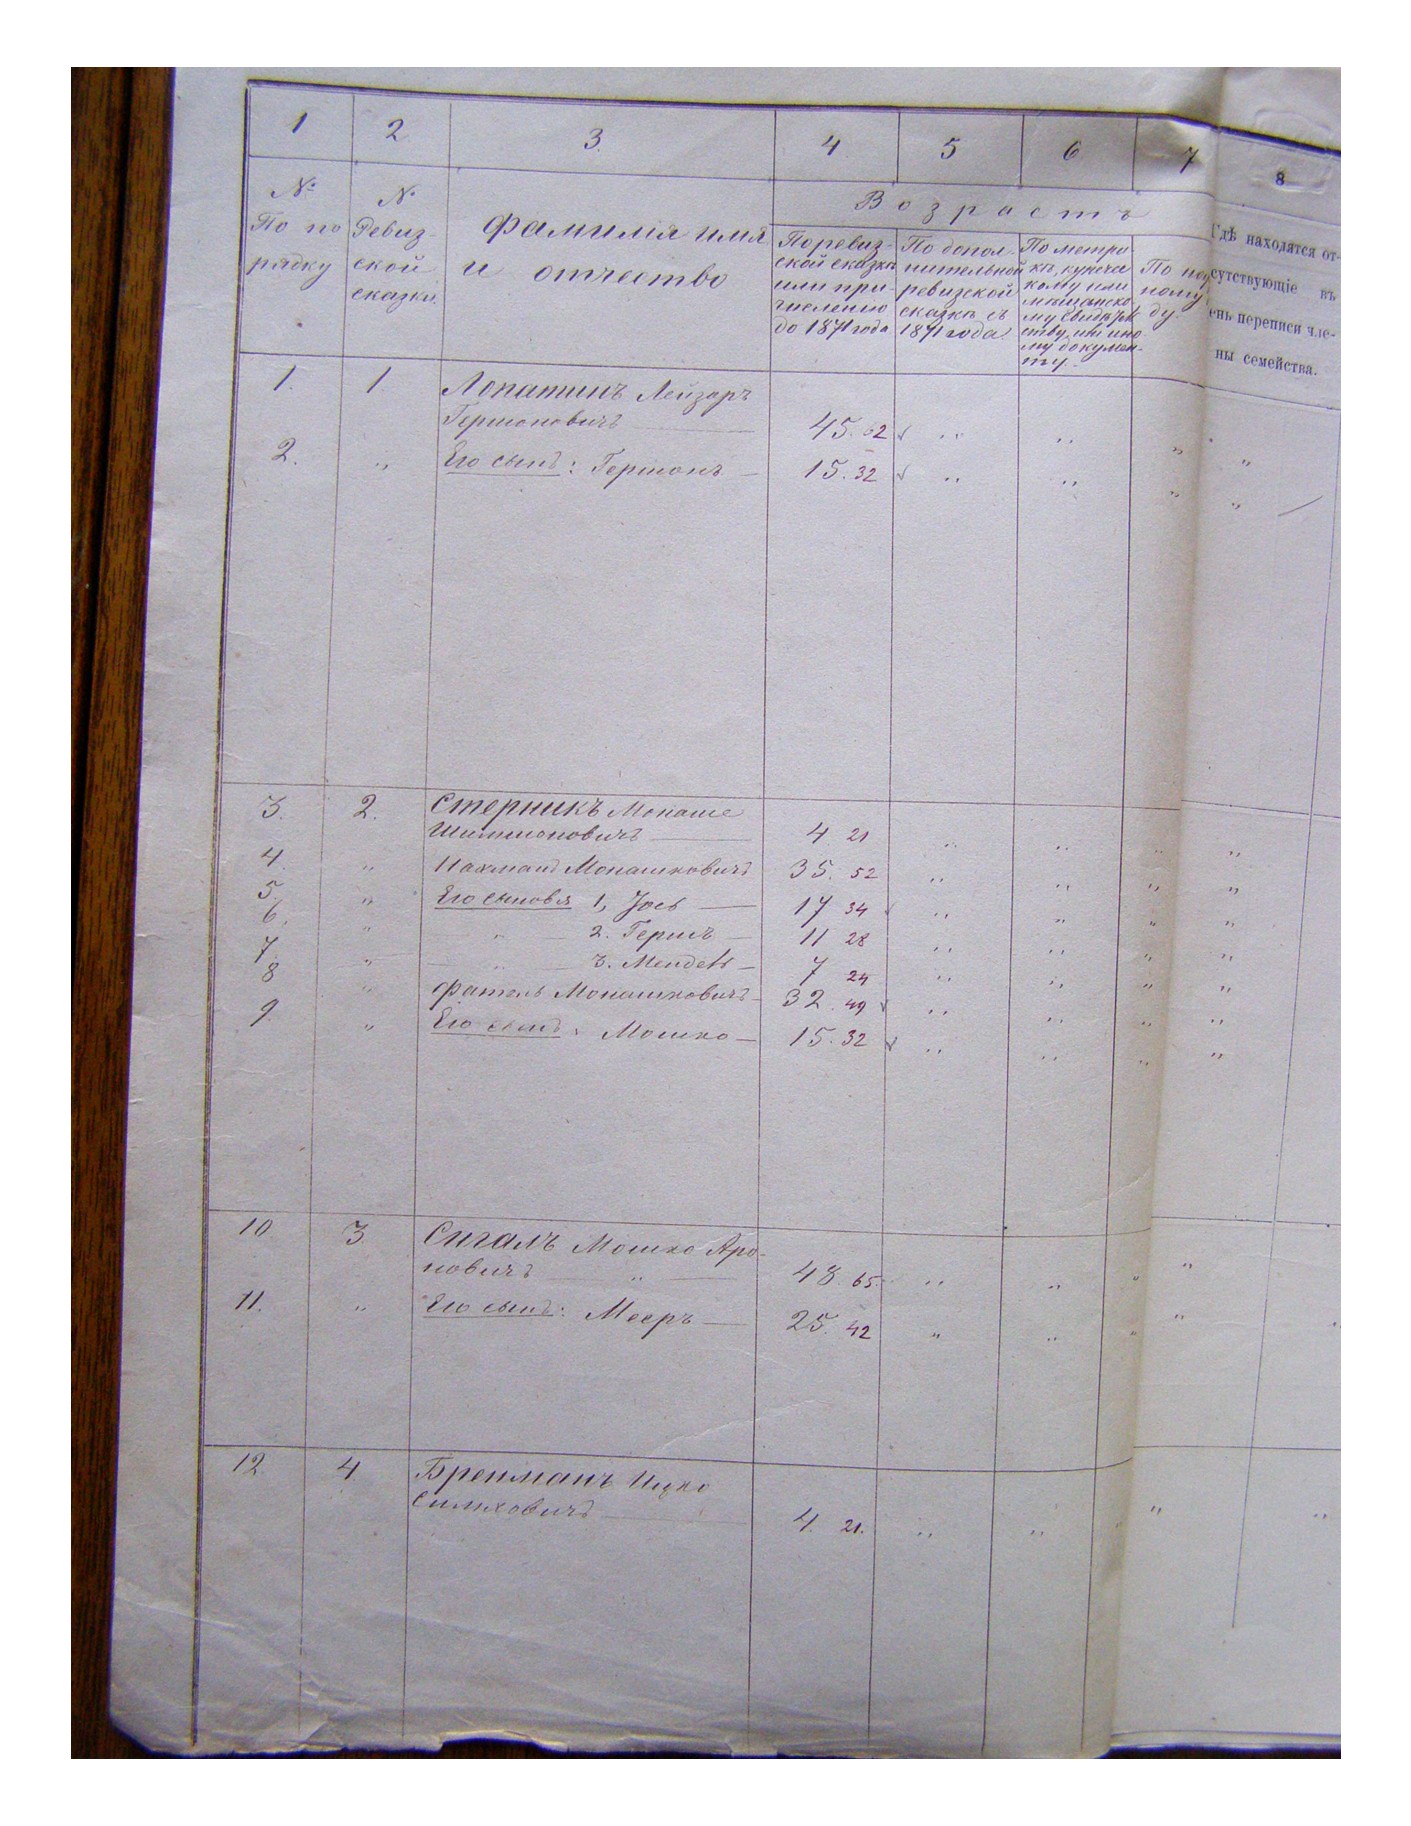 1 2 3. 4 5 6 7 8
№ По порядку
№ Ревизской сказки.
Фамилія имя и отчество
Возрастъ
По ревизской сказкѣ или причисленію до 1871 года
По дополнительной ревизской сказкѣ съ 1871 года.
По метрикѣ, купеческому или мѣщанскому свидѣтельству, или иному документу.
По ному ду.
Гдѣ находятся отсутствующіе въ ень переписи члены семейства.
1. 1. Лопатинъ Лейзаръ
Гершоновичъ 45. 62 „ „ „ „
2. „ Его сынъ: Гершонъ 15. 32 „ „ „ „
3. 2. Стерникъ Монаше
Шимшоновичъ 4 21 „ „ „ „
4. „ Нахманъ Монашковичъ 35. 52 „ „ „ „
5. „ Его сыновья 1, Іось 17 34 „ „ „ „
6. „ „ 2. Гершъ 11 28 „ „ „ „
7 „ „ 3. Mendel 7 24 „ „ „ „
8 „ Фатель Монашковичъ 32. 49 „ „ „ „
9. „ Его сынъ: Мошко 15. 32 „ „ „ „
10 3 Сигалъ Мошко Аро-
новичъ „ 48. 65. „ „ „ „
11. „ Его сынъ: Мееръ 25. 42 „ „ „ „
12 4 Бренманъ Ицко
Силиховичъ 4. 21. „ „ „ „